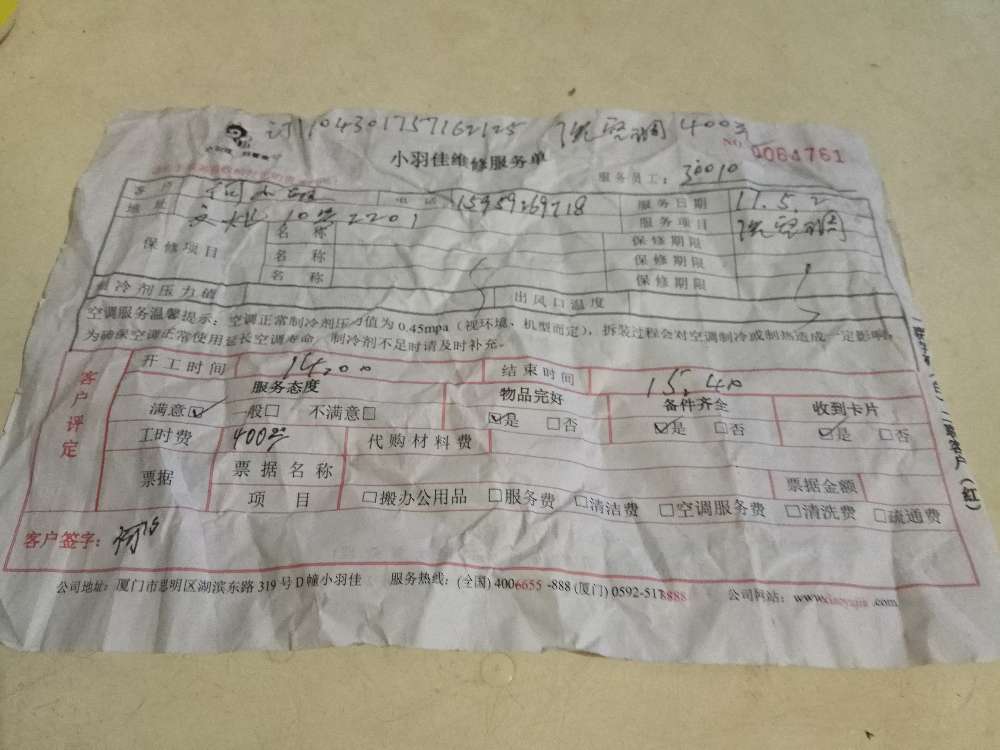 订1104301757162125 洗空调 400元
小羽佳维修服务单
NO. 0064761
服务员工：30010
客户 何小姐 电话 15959269718 服务日期 17.5.2
地址 10# 2201 服务项目 洗空调
保修项目 名称 保修期限
名称 保修期限
名称 保修期限
制冷剂压力值 出风口温度
空调服务温馨提示：空调正常制冷剂压力值为 0.45mpa（视环境、机型而定），拆装过程会对空调制冷或制热造成一定影响，
为确保空调正常使用延长空调寿命，制冷剂不足时请及时补充。
客户评定
开工时间 14.00 结束时间 15.40
服务态度 物品完好 备件齐全 收到卡片
满意☑ 一般□ 不满意□ ☑是 □否 ☑是 □否 ☑是 □否
工时费 400元 代购材料费
票据 票据名称 票据金额
项目 □搬办公用品 □服务费 □清洁费 □空调服务费 □清洗费 □疏通费
客户签字：何
公司地址：厦门市思明区湖滨东路 319 号 D 幢小羽佳 服务热线：(全国) 4006655-888 (厦门) 0592-5178888 公司网站：www.xiaoyujia.com
二联客户（红）